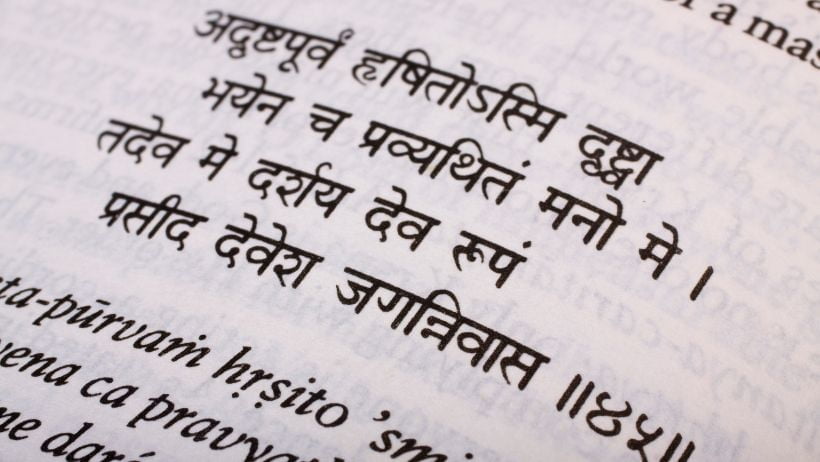 r a mas
अदृष्टपूर्वं हृषितोऽस्मि दृष्ट्वा
भयेन च प्रव्यथितं मनो मे ।
तदेव मे दर्शय देव रूपं
प्रसीद देवेश जगन्निवास ॥४५॥
ta-pūrvaṁ hṛṣito ’smi
ena ca pravyat
me darś